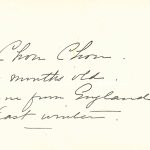 Chon Chon.
months old.
from England
last winter.